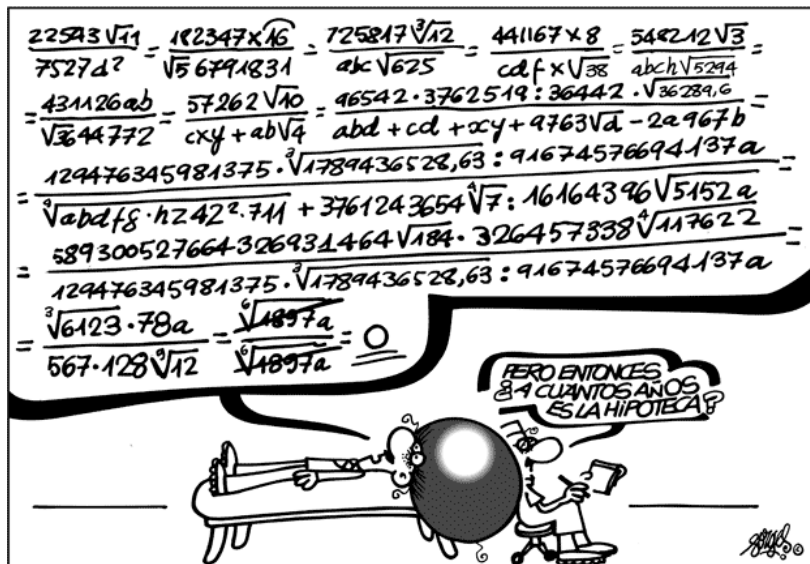 22543√11 / 7527d² = 182347×16 / √5 6791831 = 725817 ³√12 / abc√625 = 441167×8 / cdf×√38 = 548212√3 / abch√5294 =
= 431126ab / √3644772 = 57262√10 / cxy+ab√4 = 96542·3762519:36442·√36289,6 / abd+cd+xy+9763√d-2a967b =
= 129476345981375·³√1789436528,63:91674576694137a / ⁴√abdfg·hz42²·711+3761243654⁴√7:16164396√5152a =
= 589300527664326931464√184·326457338⁴√117622 / 129476345981375·³√1789436528,63:91674576694137a =
= ³√6123·78a / 567·128³√12 = ⁶√1897a / ⁶√1897a = 0
PERO ENTONCES
¿A CUANTOS AÑOS
ES LA HiPOTECA?